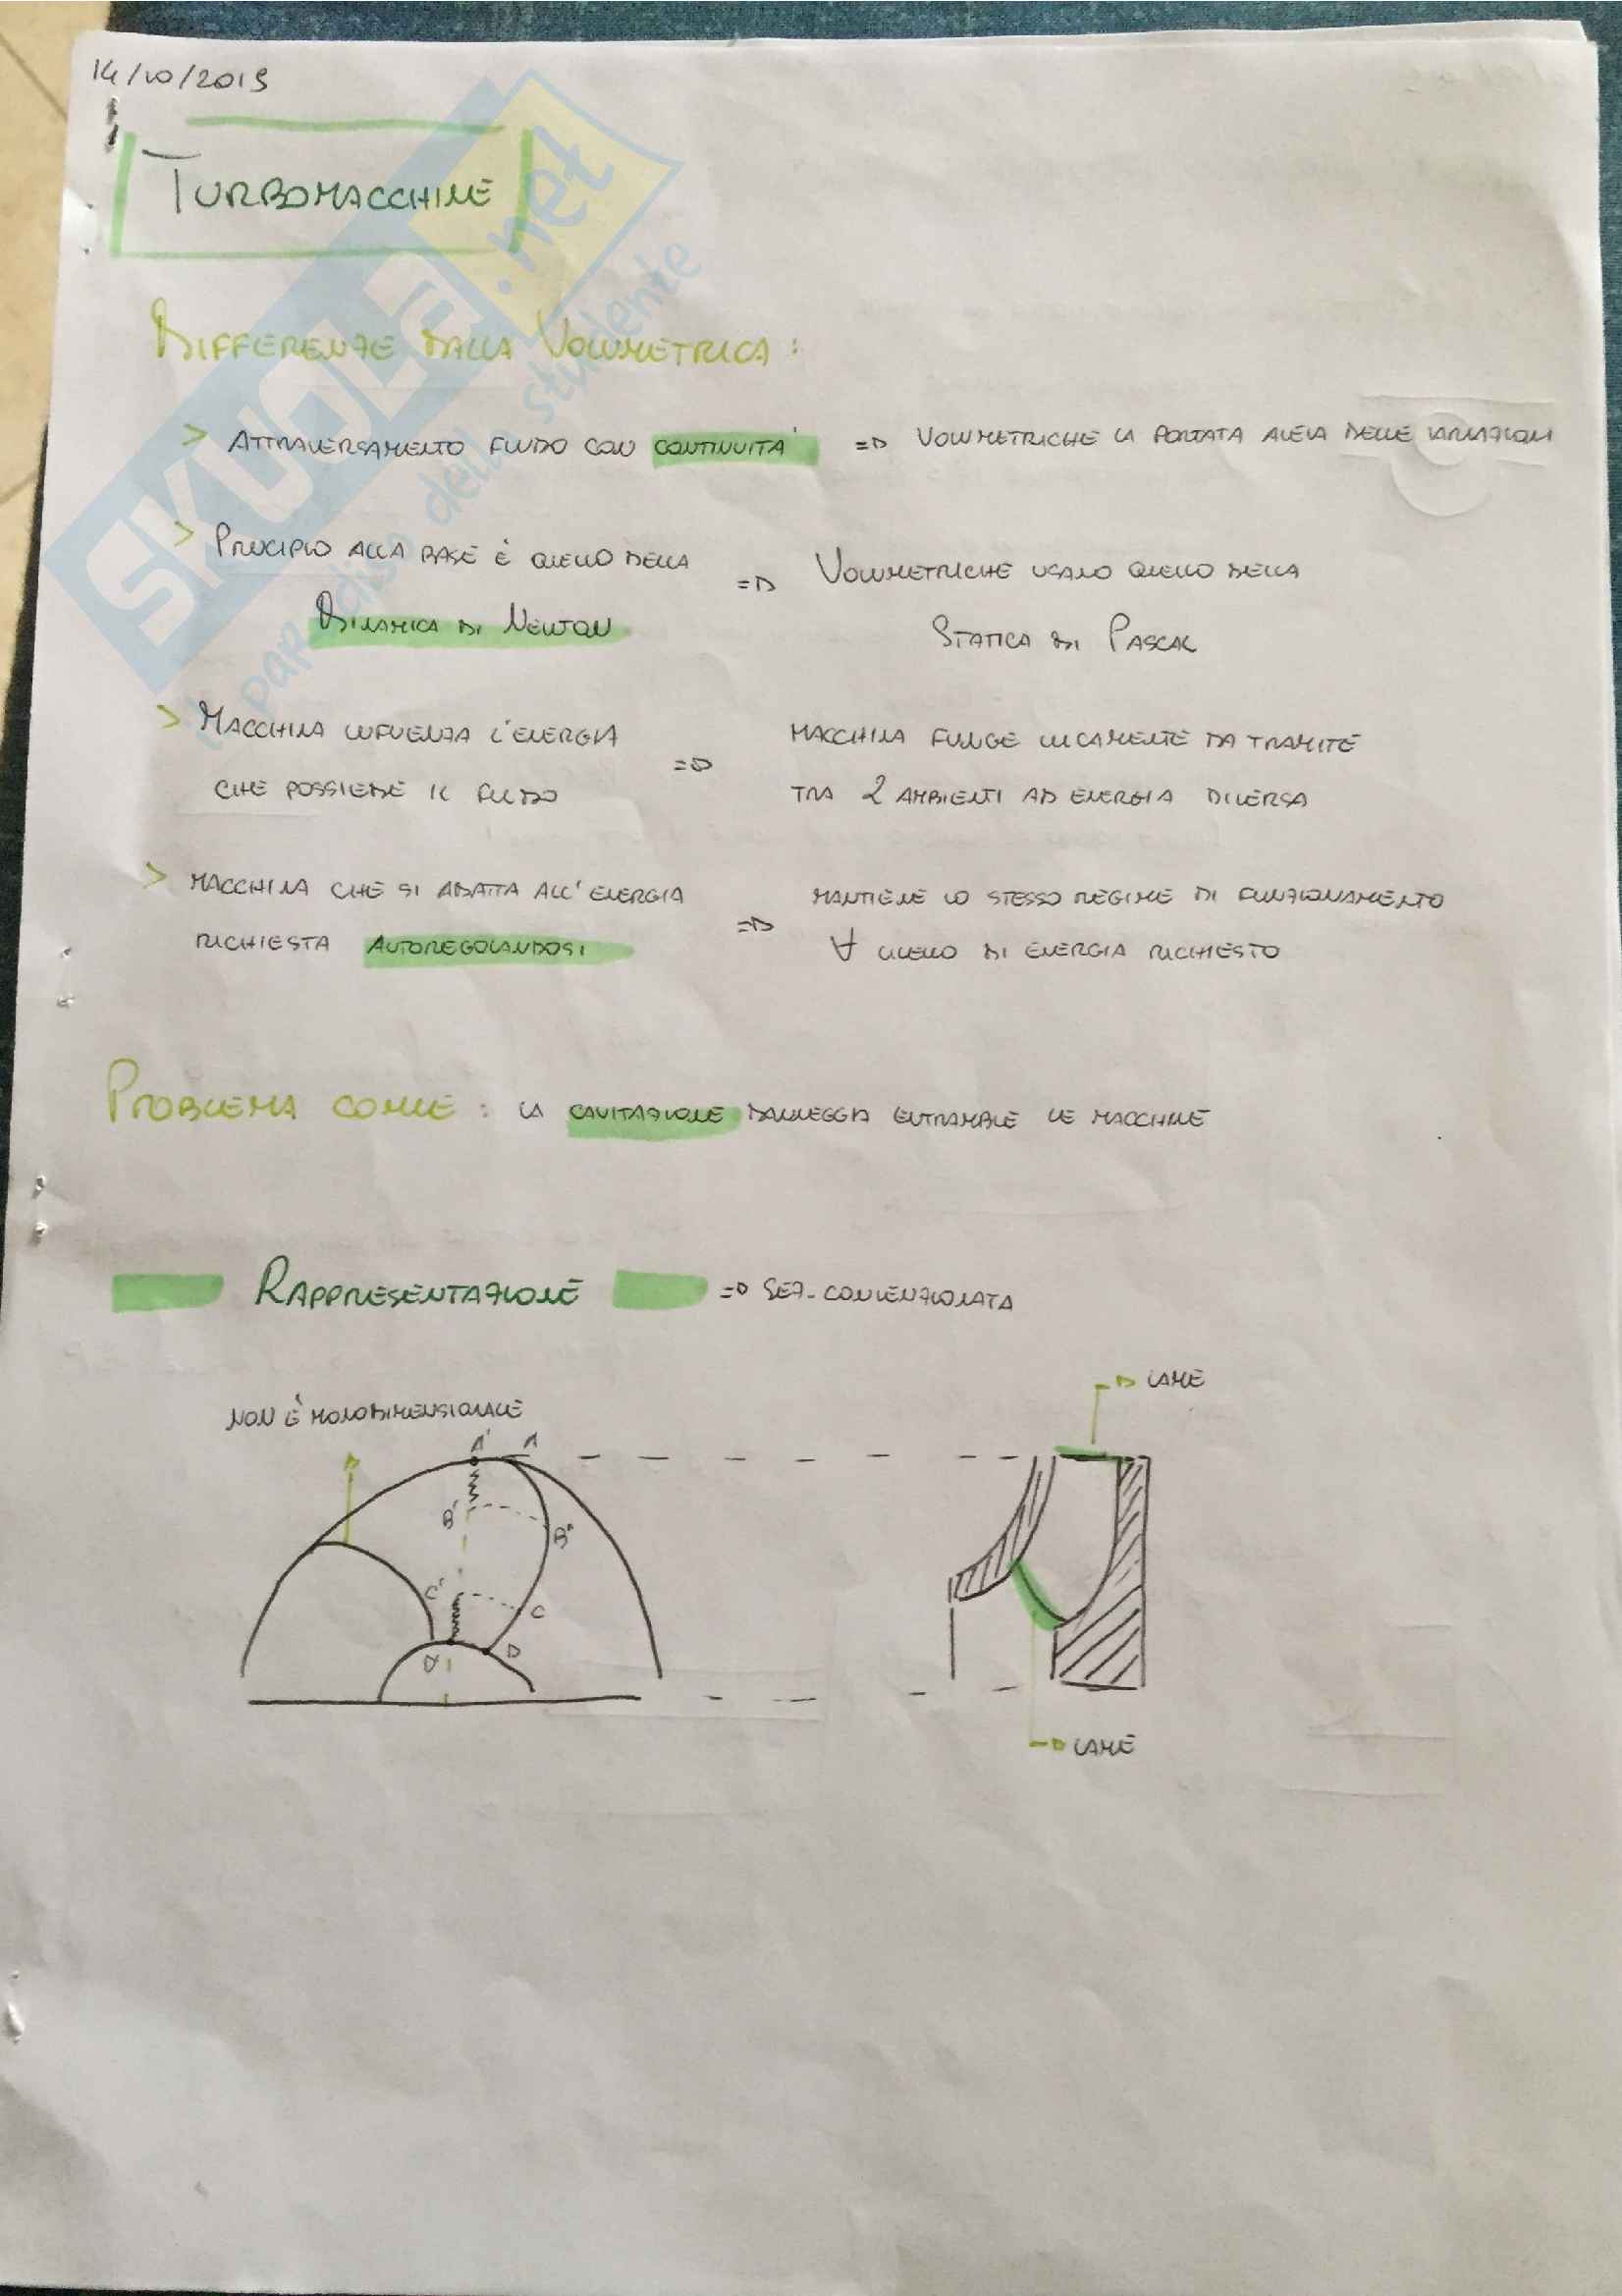 14/10/2019
TURBOMACCHINE
DIFFERENZE DALLA VOLUMETRICA:
> ATTRAVERSAMENTO FLUIDO CON CONTINUITA' => VOLUMETRICHE LA PORTATA AVEVA DELLE VARIAZIONI
> PRINCIPIO ALLA BASE È QUELLO DELLA
DINAMICA DI NEWTON
=> VOLUMETRICHE USANO QUELLO DELLA
STATICA DI PASCAL
> MACCHINA INFLUENZA L'ENERGIA
CHE POSSIEDE IL FLUIDO
=> MACCHINA FUNGE UNICAMENTE DA TRAMITE
TRA 2 AMBIENTI AD ENERGIA DIVERSA
> MACCHINA CHE SI ADATTA ALL'ENERGIA
RICHIESTA AUTOREGOLANDOSI
=> MANTIENE LO STESSO REGIME DI FUNZIONAMENTO
∀ LIVELLO DI ENERGIA RICHIESTO
PROBLEMA COMUNE: LA CAVITAZIONE DANNEGGIA ENTRAMBLE LE MACCHINE
RAPPRESENTAZIONE => SEZ. CONVENZIONATA
LAME
NON È MONODIMENSIONALE
A' A
B' B"
C' C
D' D
LAME
SKUOLA.net
il paradiso dello studente